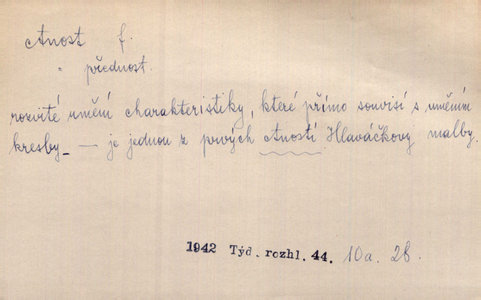 ctnost f.
" přednost.
rozvité umění charakteristiky, které přímo souvisí s uměním
kresby – — je jednou z prvých ctností Hlaváčkovy malby.
1942 Týd. rozhl. 44. 10a. 28.